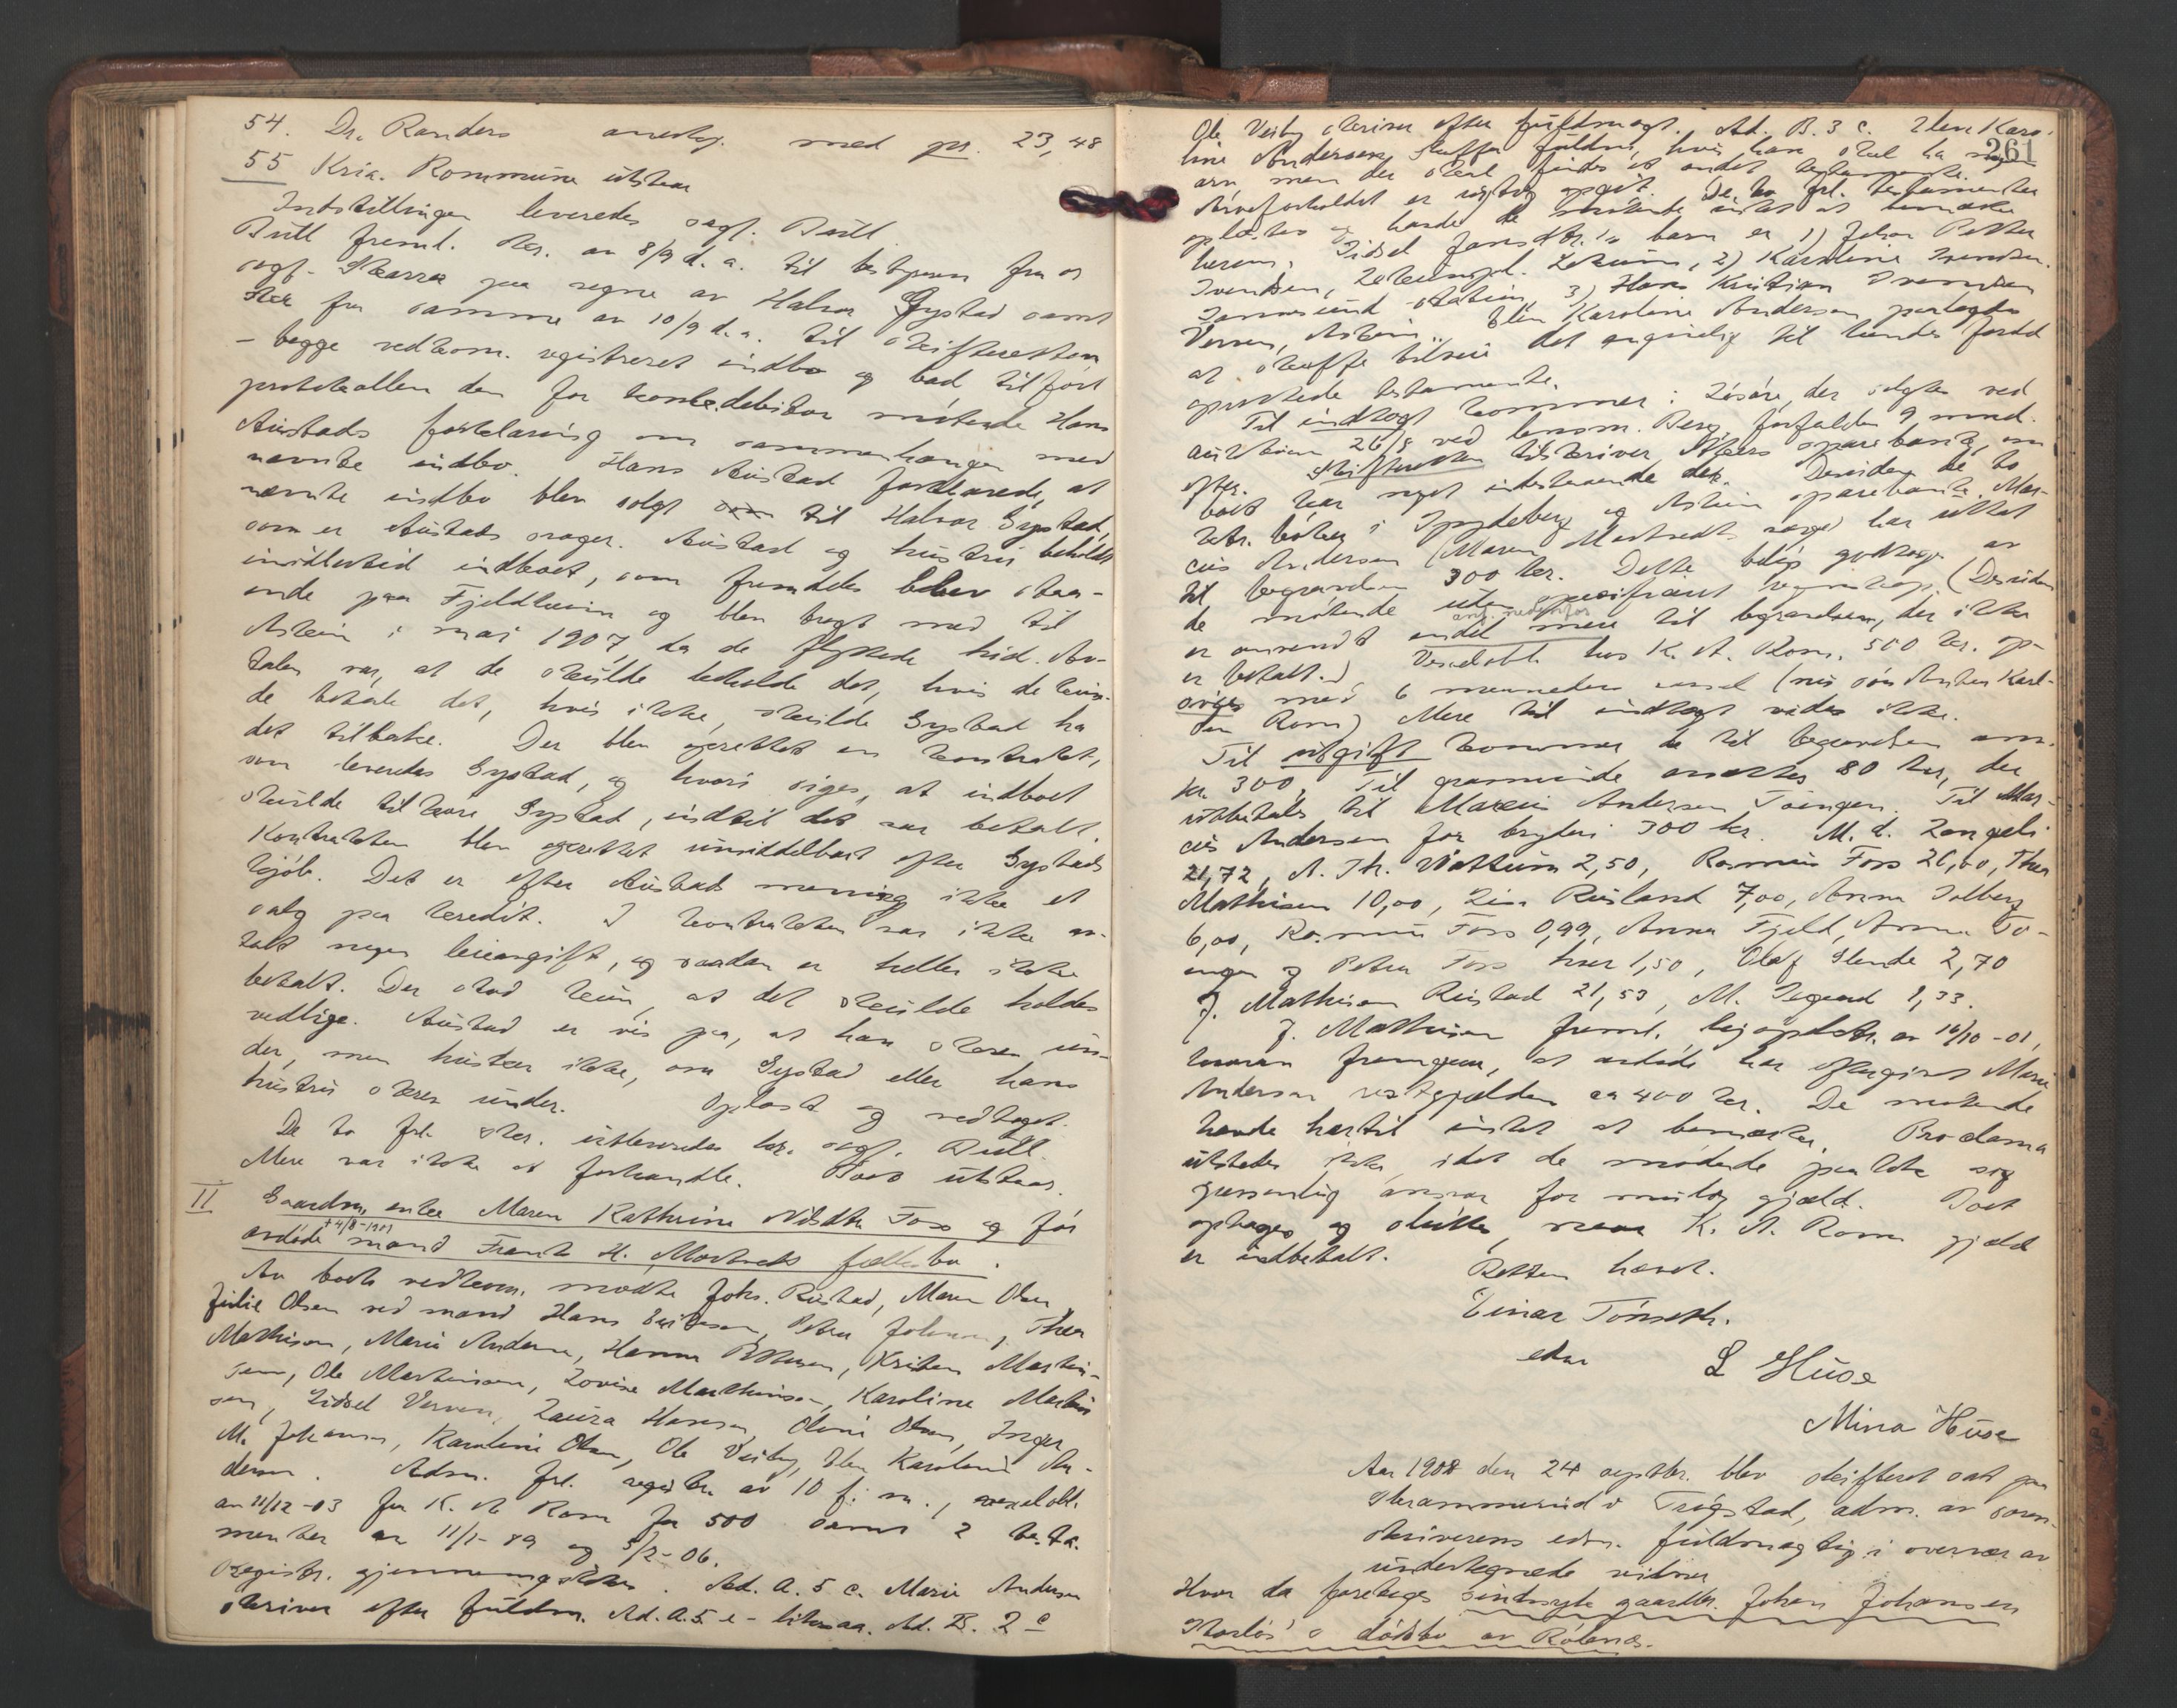 54. Dr. Randers anerkj. med pr. 23,48
55 Kria. Kommune utstaar
Indstillingen leveredes sagf. Bull.
Bull freml. skr. av 8/9 d. a. til bestyreren fra os
sagf. Skarre paa vegne av Halvor Gystad samt
skr fra samme av 10/9 d. a. til skifteretten
- begge vedkom. registreret indbo og bad tilført
protokollen den for konk.debitor møtende Hans
Austads forklaring om sammenhængen med
nævnte indbo. Hans Austad forklarede, at
nævnte indbo blev solgt til Halvor Gystad,
som er Austads svoger. Austad og hustru beholdt
imidlertid indboet, som fremdeles blev staa-
ende paa Fjeldheim og blev bragt med til
Askim i mai 1907, da de flyttede hid. Av-
talen var, at de skulde beholde det, hvis de kun-
de betale det, hvis ikke, skulde Gystad ha
det tilbake. Der blev oprettet en kontrakt,
som leveredes Gystad, og hvori siges, at indboet
skulde tilhøre Gystad, indtil det var betalt.
Kontrakten blev oprettet umiddelbart efter Gystads
kjøb. Det er efter Austads mening ikke et
salg paa kredit. I kontrakten var ikke av-
talt nogen leieavgift, og saadan er heller ikke
betalt. Der stod kun, at det skulde holdes
vedlige. Austad er vis paa, at han skrev un-
der, men husker ikke, om Gystad eller hans
hustru skrev under. Oplæst og vedtaget.
De to frl. skr. utleveredes hr. sagf. Bull.
Mere var ikke at forhandle. Boet utstaar.
II Gaardm. enke Maren Kathrine Nilsdtr Foss og før
avdøde +4/8-1901 mand Frants H. Mostvedts fællesbo.
Av boets vedkom. møtte Johs. Rustad, Maren Olsen,
Julie Olsen ved mand Hans Eriksen, Petra Johnsen, Thea
Mathisen, Marie Andersen, Hanna Pettersen, Kristian Martin-
sen, Ole Martinsen, Lovise Mathisen, Karoline Martin
sen, Sidsel Verven, Laura Hansen, Oline Olsen, Inger
M. Johansen, Karoline Olsen, Ole Veiby, Elen Karoline An-
dersen. Adm. frl. registr. av 10 f. m., vexelobl.
av 11/12-03 fra K. A. Kom for 500 samt 2 testa-
menter av 11/1-89 og 5/2-06.
Registr. gjennemgikkes. Ad. A. 5 c. Marie Andersen
skriver efter fuldm. Ad. A. 5 e - likesaa. Ad. B. 2 c
261
Ole Veiby skriver efter fuldmagt. Ad. B. 3 c. Elen Karo-
line Andersen skaffer fuldm, hvis han skal ha nogen
arv, men der skal findes et andet testamente.
Arveforholdet er rigtig opgit. De to frl. testamenter
oplæstes og havde de møtende intet at bemærke
herom. Sidsel Jansdtr.'s barn er 1) Johan Petter
Svendsen, 2) Karoline Svendsen,
Sannesund station, 3) Hans Kristian Svendsen
Verven, Askim. Elen Karoline Andersen paalagdes
at skaffe tilveie det angivelig til hendes fordel
oprettede testamente.
Til indtægt kommer: Løsøre, der solgtes ved
auktion 26/8 ved lensm. Berg, forfalden 9 mnd.
efter. Skifteretten tilskriver Akers sparebank, om
boet har noget indestaaende der. Desuden de to
bøker i Spydeberg og Askim sparebanke. Mar-
cus Andersen (Maren Mostvedts svoger) har uttat
til begravelsen 300 kr. Dette beløp godtages av
de møtende uten specificeret regnskap. (Desuden
er anvendt endel mere til begravelsen, der ikke
er betalt.) Vexelobl. hos K. A. Kom. 500 kr. op-
siges med 6 maaneders varsel (nu søn Anton Karl-
sen Kom) Mere til indtægt vides ikke.
Til utgift kommer de til begravelsen anv.
kr. 300. Til gravminde avsættes 80 kr, der
utbetales til Marcus Andersen Toengen. Til Mar-
cus Andersen for bryderi 300 kr. M. d. Langseli
21,72, A. Th. Nattum 2,50, Rasmus Foss 26,00, Thea
Mathisen 10,00, Lina Rusland 7,00, Anna Solberg
6,00, Rasmus Foss 0,99, Anna Fjeld, Anna To-
engen og Petra Foss hver 1,50, Olaf Glende 2,70
J. Mathisen Rustad 21,53, M. Segerud 1,33.
J. Mathisen freml. av 16/10-01,
hvorav fremgaar, at avdøde har eftergivet Marie
Andersen restgjælden ca 400 kr. De møtende
havde hertil intet at bemærke. Proclama
utstedes ikke, idet de mødende paatok sig
gjensidig ansvar for mulig gjæld. Boet
optages og sluttes, naar K. A. Koms gjæld
er indbetalt.
Retten hævet.
Einar Tønseth.
edsv
L Huse
Mina Huse
Aar 1908 den 24 septbr. blev skifteret sat paa
Skrammerud i Trøgstad, adm. av soren-
skriverens edsv. fuldmægtig i overvær av
undertegnede vidner
Hvor da foretages sindssyke gaardbr. Johan Johansen
Skarløs's dødsbo av Rølenes.